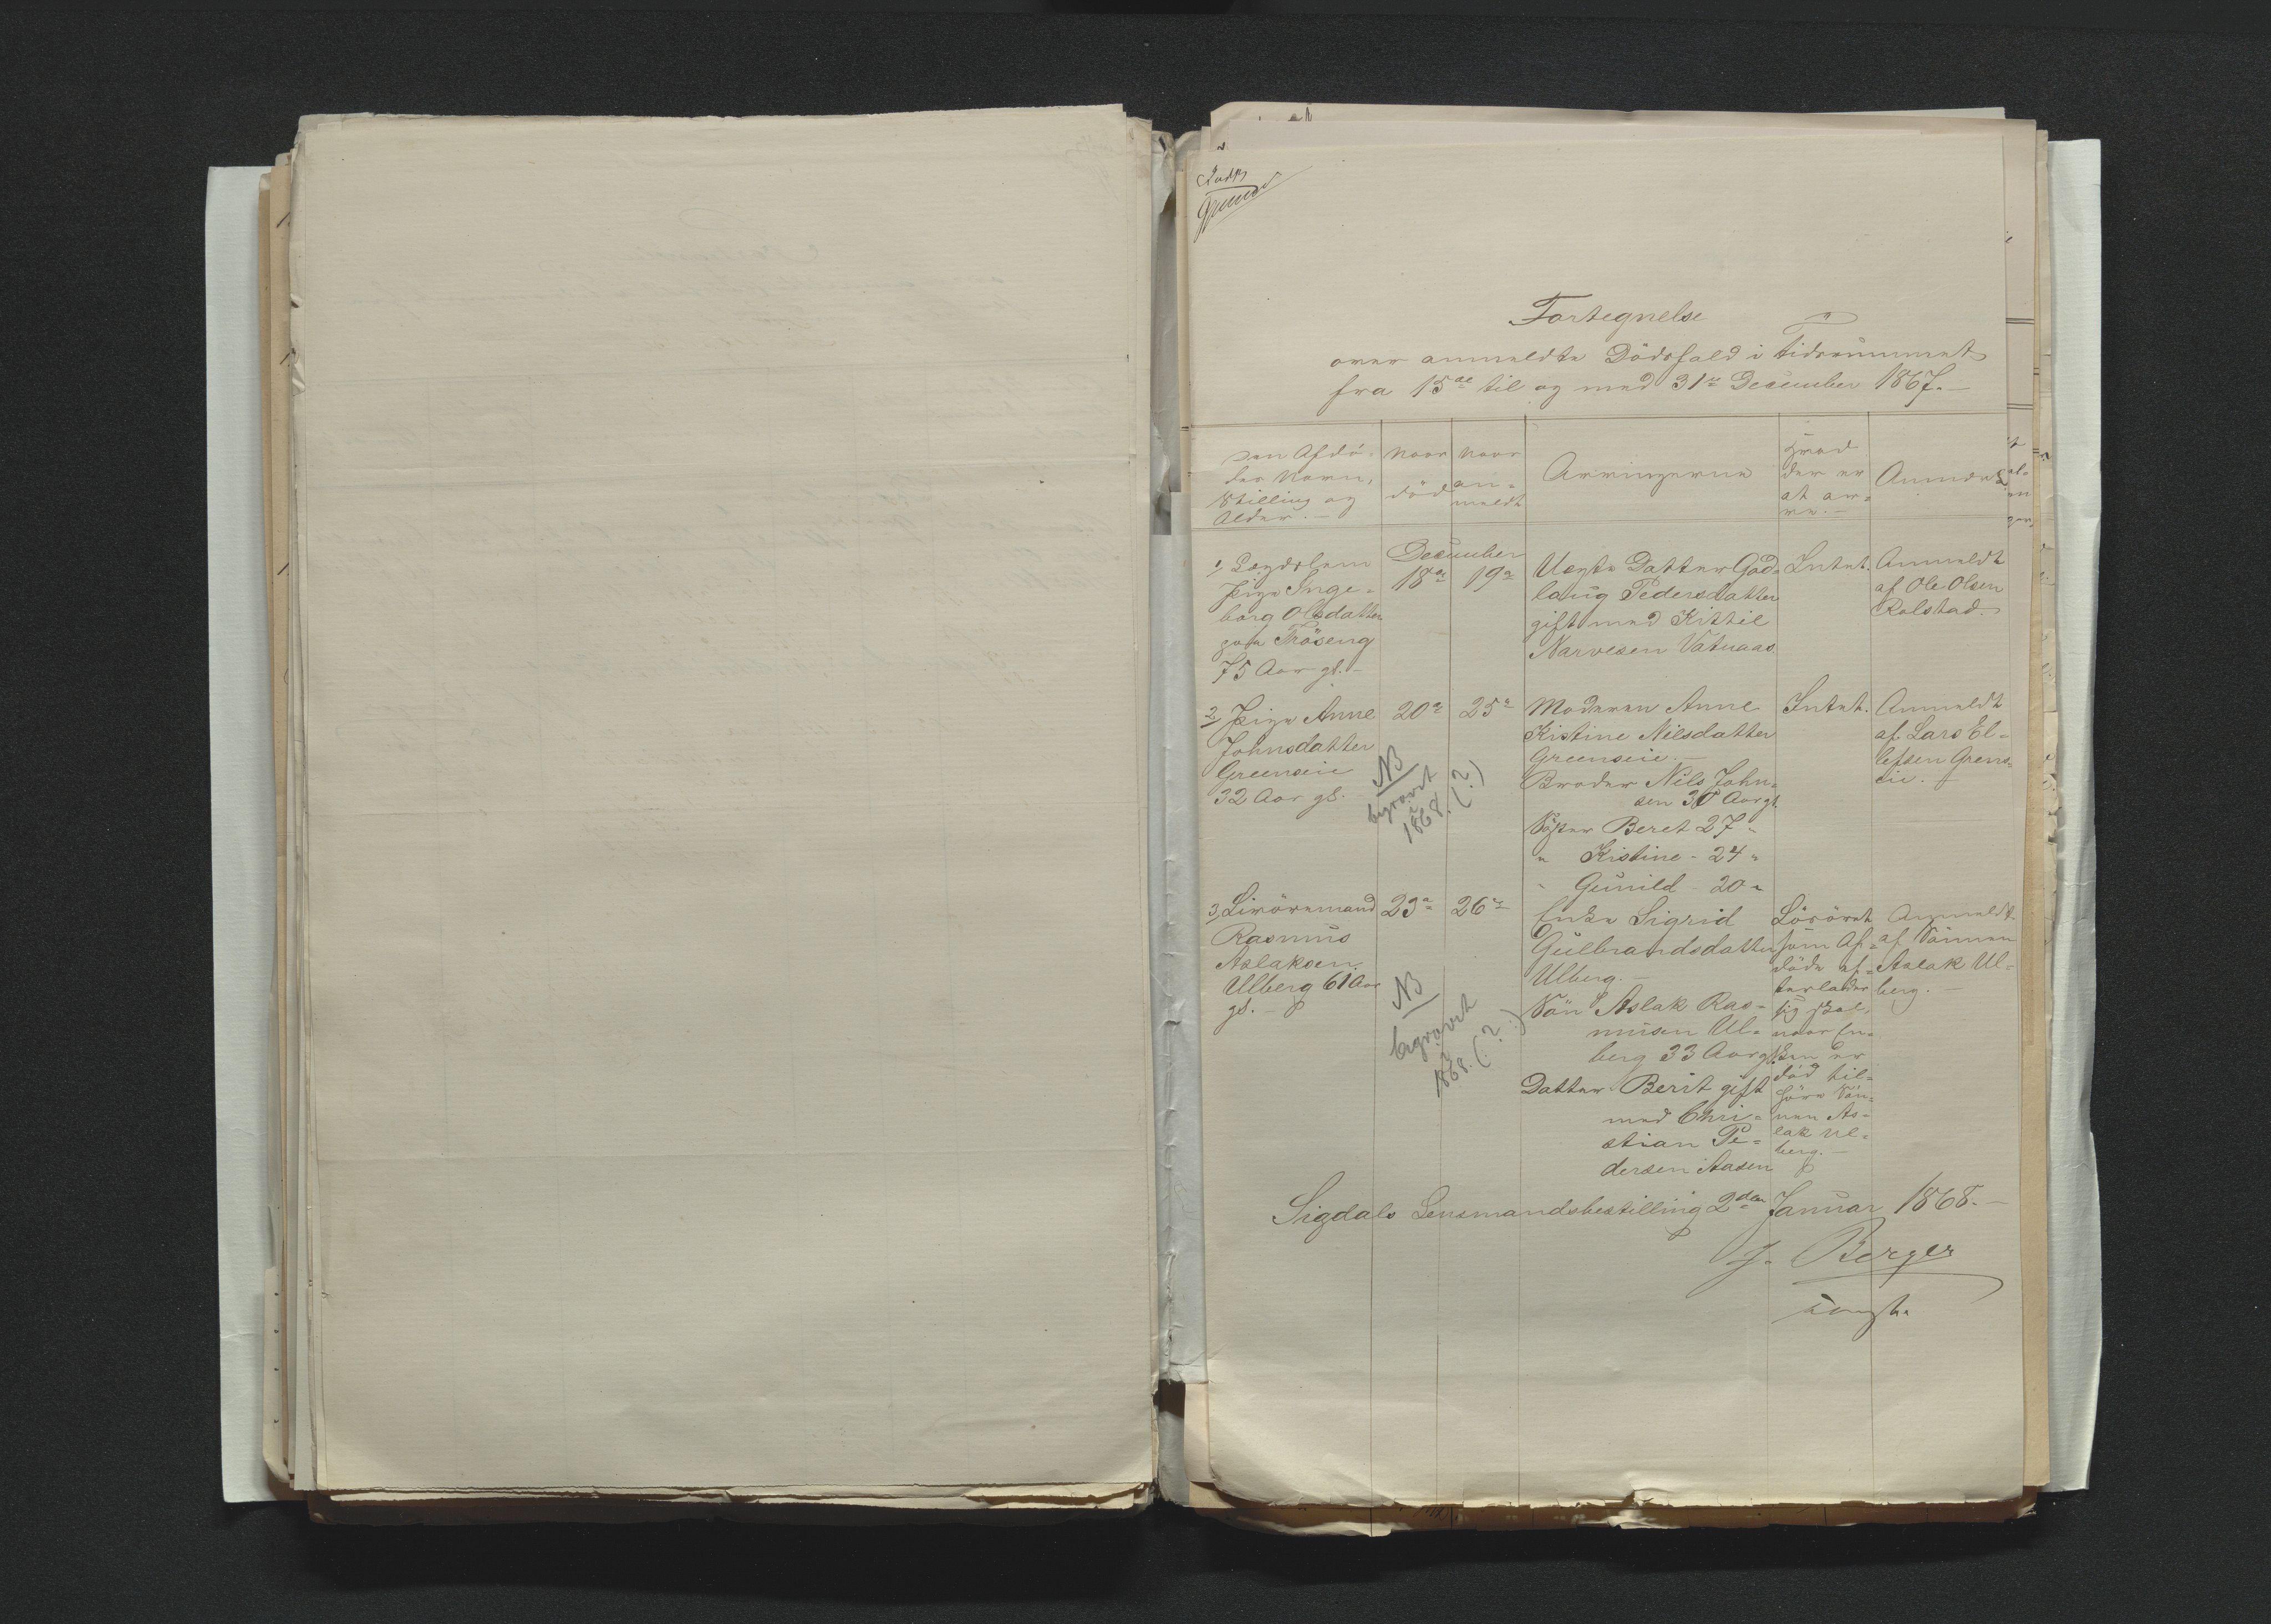 Fortegnelse
over anmeldte Dödsfald i Tidsrummet
fra 15de til og med 31te December 1867.
Den Afdö-
des Navn,
Stilling og
Alder.
Naar
död
Naar
an-
meldt
Arvingerne
Hvad
der er
at ar-
ve.
Anmærk.
December
1, Lægdslem
Pige Inge-
borg Olsdatter
paa Fröseng
75 Aar gl.
18de
19de
Uægte Datter Gud-
laug Pedersdatter
gift med Kittil
Narvesen Vatnaas.
Intet.
Anmeldt
af Ole Olsen
Rolstad.
2, Pige Anne
Johnsdatter
Greenseie
32 Aar gl.
20de
25de
NB
begravet
i
1868. (?)
Moderen Anne
Kistine Nilsdatter
Greenseie.
Broder Nils John-
sen 30 Aar gl.
Söster Beret 27 "
" Kistine - 24 "
" Gunild - 20 "
Intet.
Anmeldt
af Lars El-
lefsen Grens-
eie.
3, Livöremand
Rasmus
Aslaksen
Ulberg 61 Aar
gl.
23de
26de
NB
begravet
i
1868. (?)
Enke Sigrid
Gulbrandsdatter
Ulberg.
Sön Aslak Ras-
musen Ul-
berg 33 Aar gl.
Datter Berit gift
med Chri-
stian Pe-
dersen Aasen
Lösöret
som Af-
döde ef-
terlader
sig skal,
naar En-
ken er
död til-
höre Sön-
nen As-
lak Ul-
berg.
Anmeldt
af Sönnen
Aslak Ul-
berg.
Sigdals Lensmandsbestilling 2den Januar 1868.
J. Berger
const.